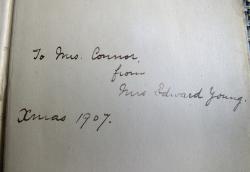 To Mrs. Connor,
from
Mrs Edward Young.
Xmas 1907.